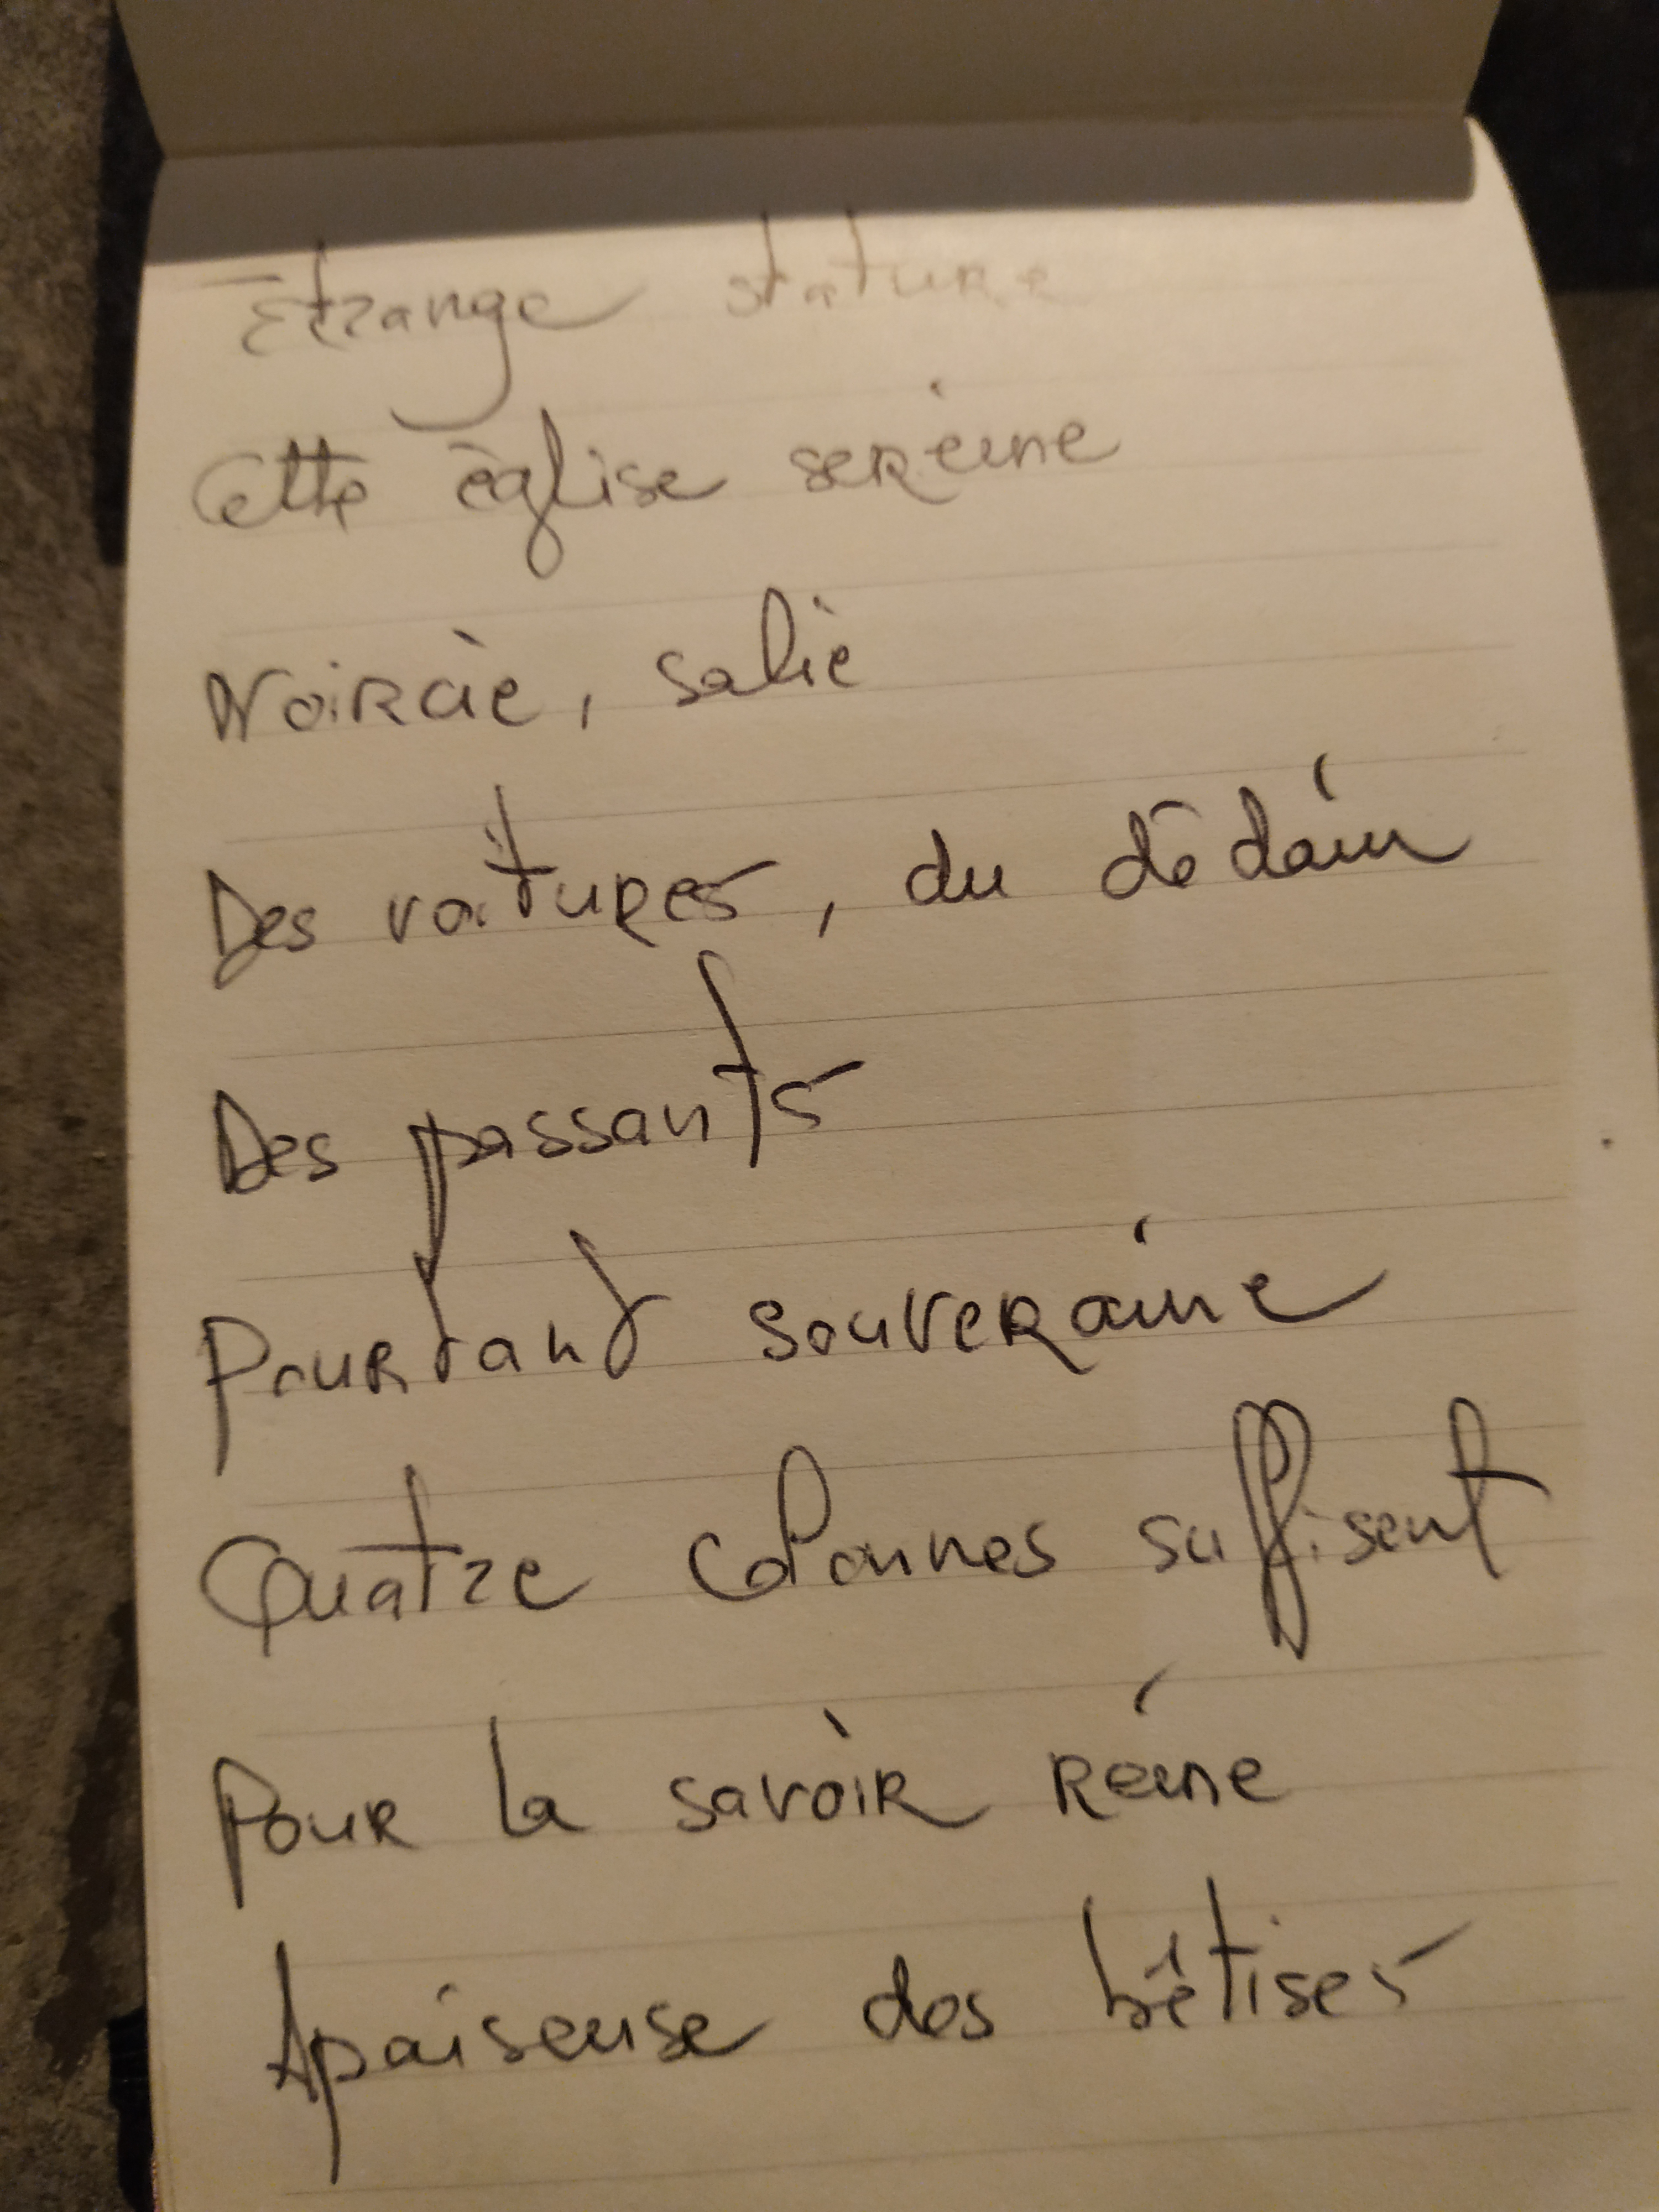 Etrange stature
Cette église sereine
Noircie, salie
Des voitures, du dédain
Des passants
Pourtant souveraine
Quatre colonnes suffisent
Pour la savoir reine
Apaiseuse des bêtises